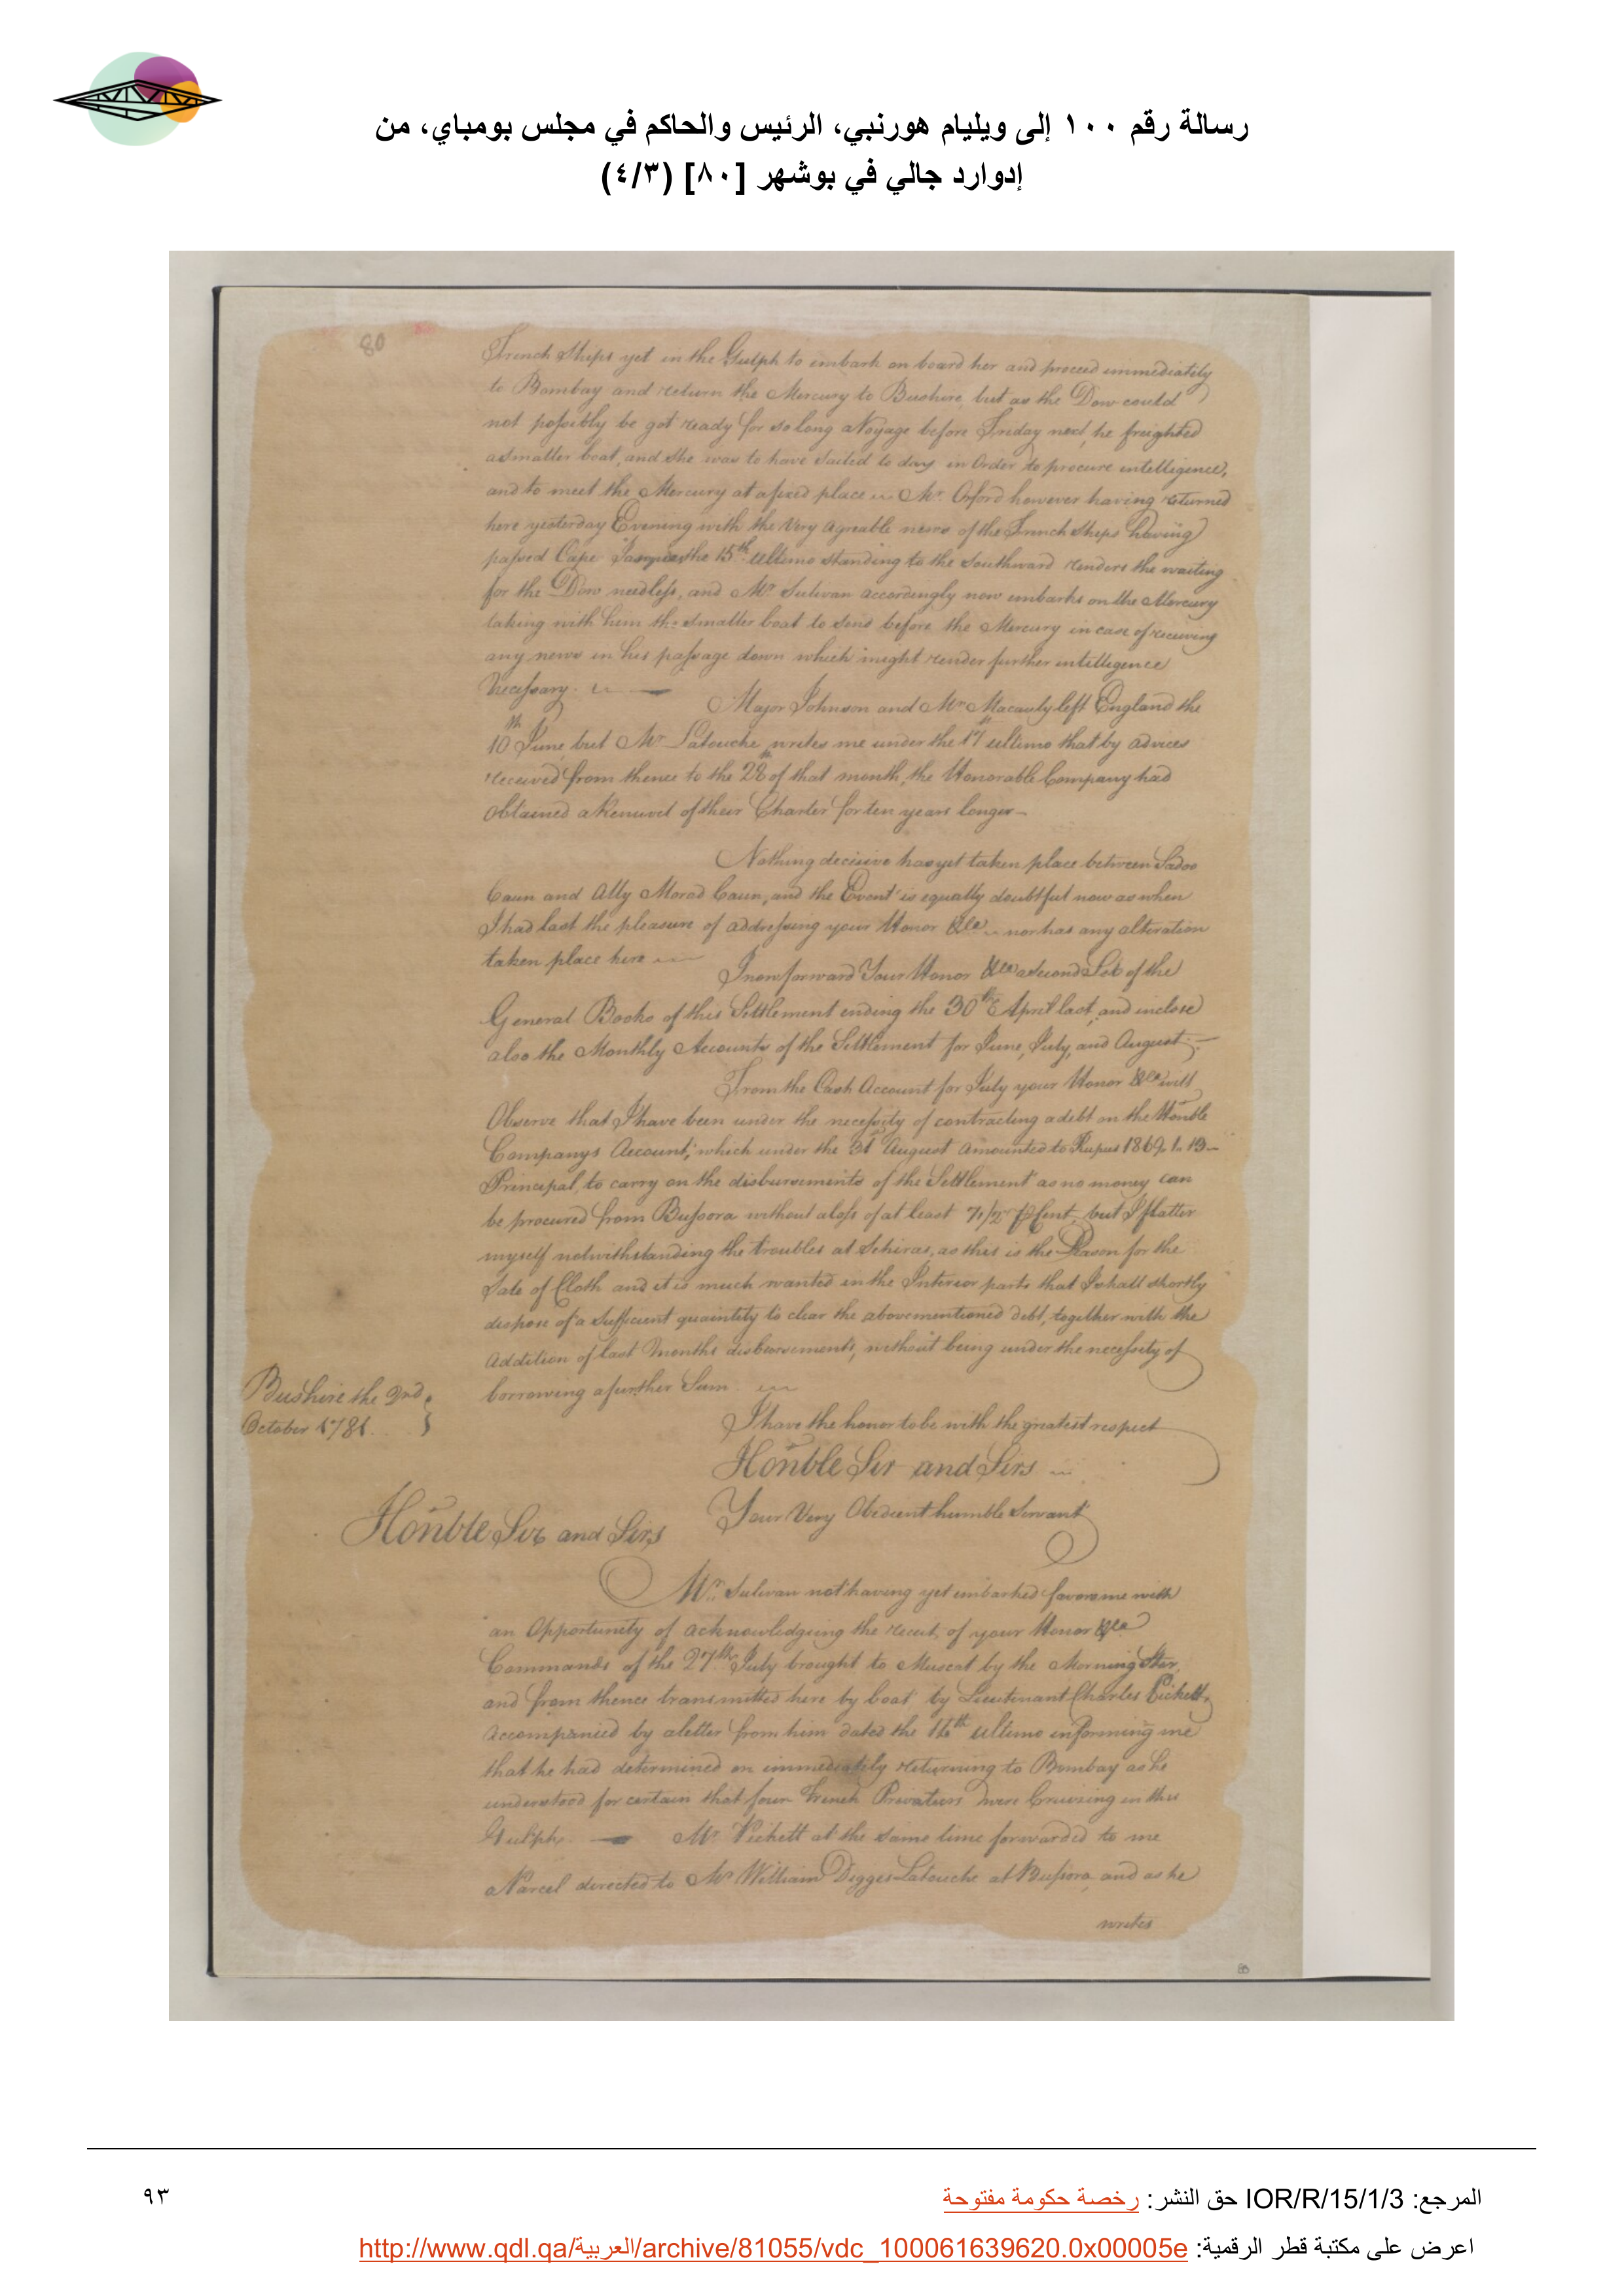 رسالة رقم ١٠٠ إلى ويليام هورنبي، الرئيس والحاكم في مجلس بومباي، من
إدوارد جالي في بوشهر [٨٠] (٤/٣)
80
French Ships yet in the Gulph to embark on board her and proceed immediately
to Bombay and return the Mercury to Bushire, but as the Dow could
not possibly be got ready for so long a Voyage before Friday next, he freighted
a smaller boat, and she was to have sailed to day in Order to procure intelligence,
and to meet the Mercury at a fixed place Mr. Orford however having returned
here yesterday Evening with the Very agreable news of the French Ships having
passed Cape the 15th Ultimo standing to the Southward renders the waiting
for the Dow needless, and Mr Sulivan accordingly now embarks on the Mercury
taking with him the smaller boat to send before the Mercury in case of receiving
any news in his passage down which might render further intelligence
Necessary. Major Johnson and Mr Macauly left England the
10th June but Mr Latouche writes me under the 17th ultimo that by advices
received from thence to the 28th of that month, the Honorable Company had
Obtained a Renewal of their Charter for ten years longer
Nothing decisive has yet taken place between Sadoo
Caun and Ally Morad Caun, and the Event is equally doubtful now as when
I had last the pleasure of addressing your Honor &ca nor has any alteration
taken place here I now forward Your Honor &ca a Second Set of the
General Books of this Settlement ending the 30th April last, and inclose
also the Monthly Accounts of the Settlement for June, July, and August
From the Cash Account for July your Honor &ca will
Observe that I have been under the necessity of contracting a debt on the Honble
Companys Account, which under the 31st August amounted to Rupees 1869.1.13
Principal, to carry on the disbursements of the Settlement as no money can
be procured from Bussora without a loss of at least 7 1/2 P Cent, but I flatter
myself notwithstanding the troubles at Schiras, as this is the Season for the
Sale of Cloth and it is much wanted in the Interior parts that I shall shortly
dispose of a Sufficient quaintity to clear the abovementioned debt, together with the
Addition of last Months disbursements, without being under the necessity of
borrowing a further Sum.
Bushire the 2nd
October 1781.
I have the honor to be with the greatest respect
Honble Sir and Sirs
Your Very Obedient humble Servant
Honble Sir and Sirs
Mr. Sulivan not having yet embarked favors me with
an Opportunity of acknowledging the receit of your Honor &ca
Commands of the 27th July brought to Muscat by the Morning Star,
and from thence transmitted here by boat by Lieutenant Charles Pickett,
accompanied by a letter from him dated the 16th Ultimo informing me
that he had determined on immediately returning to Bombay as he
understood for certain that four French Privateers were Cruizing in this
Gulph. Mr Pickett at the same time forwarded to me
a Parcel directed to Mr William Digges Latouche at Bussora, and as he
writes
80
المرجع: IOR/R/15/1/3 حق النشر: رخصة حكومة مفتوحة
٩٣
اعرض على مكتبة قطر الرقمية: http://www.qdl.qa/العربية/archive/81055/vdc_100061639620.0x00005e